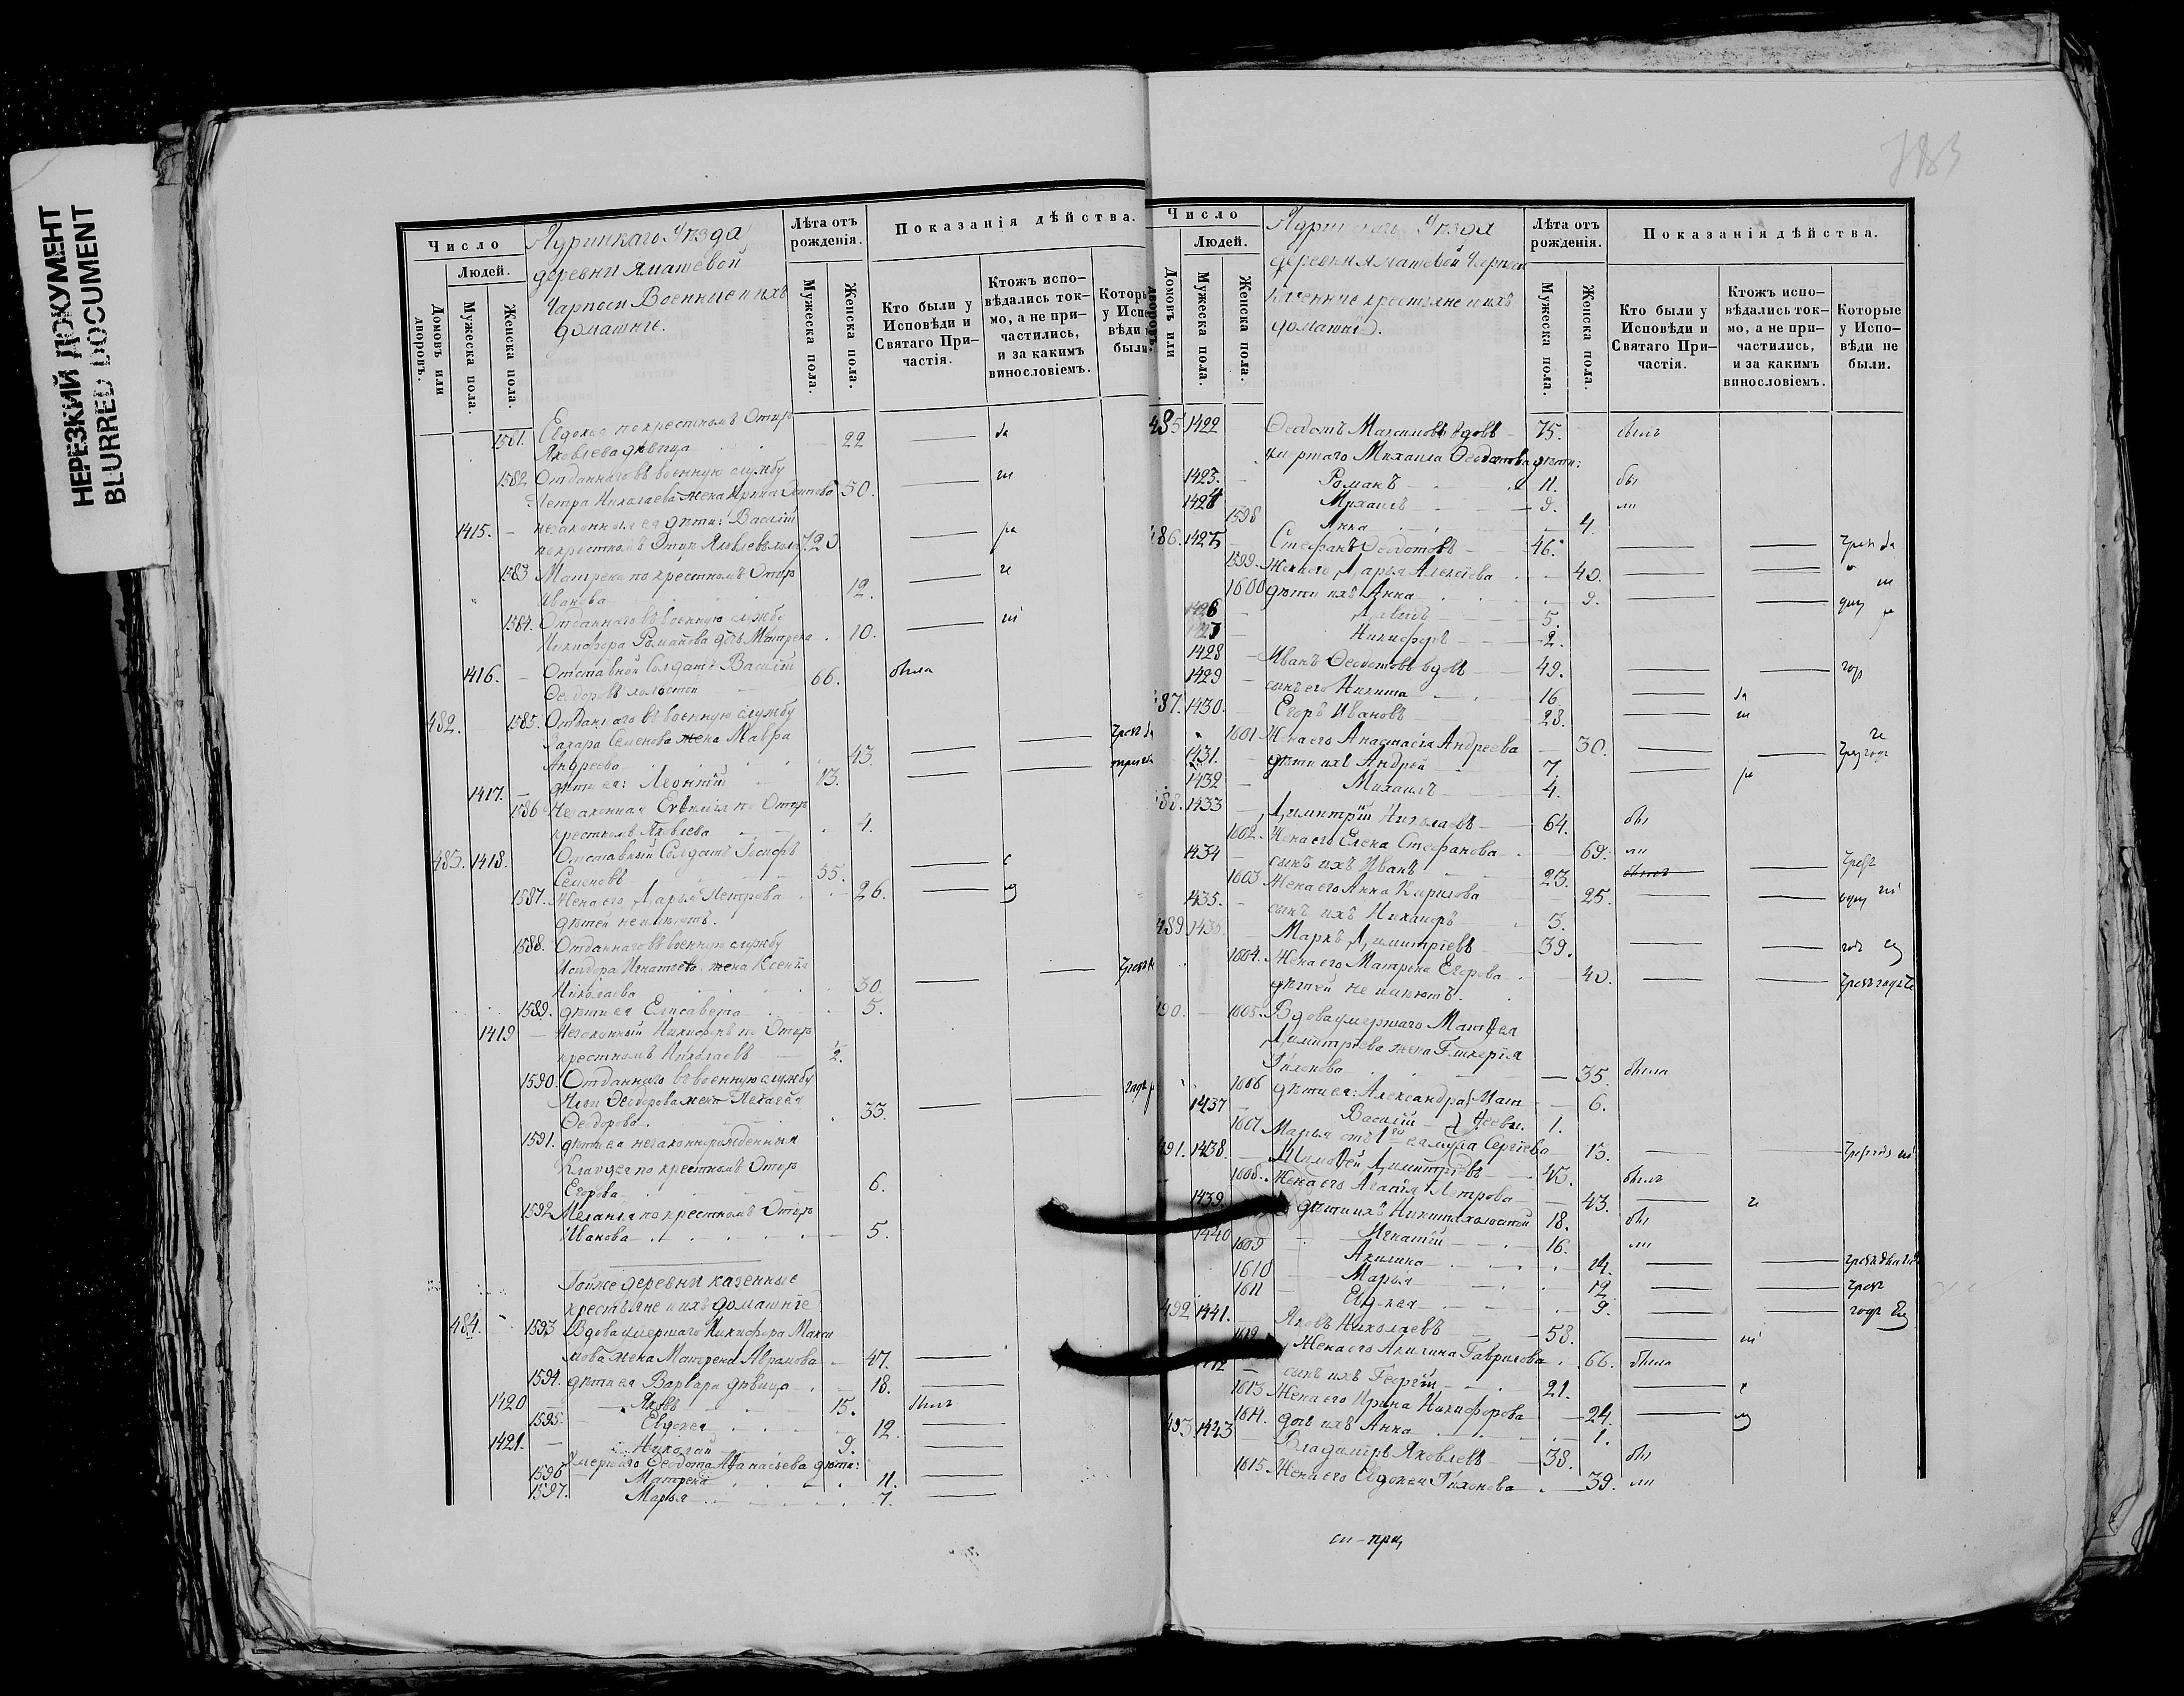 НЕРЕЗКИЙ ДОКУМЕНТ
BLURRED DOCUMENT
Число
Людей.
Домовъ или дворовъ.
Мужеска пола.
Женска пола.
деревни Яматевой
Военные и ихъ
домашніе.
Лѣта отъ рожденія.
Мужеска пола.
Женска пола.
Показанія дѣйства.
Кто были у Исповѣди и Святаго Причастія.
Ктожъ исповѣдались токмо, а не причастились, и за какимъ винословіемъ.
1581. Евдокія по крестномъ Отцѣ
Яковлева дѣвица 22
1582 Отданнаго въ военную службу
Петра Николаева жена Ирина 50.
1415. незаконныя ея дѣти: Василій
по крестномъ Отцѣ Яковлевъ
1583 Матрена по крестномъ Отцѣ
Иванова 12.
1584. Отданнаго въ военную службу
Никифора Романова дочь Матрена 10.
1416. Отставной Солдатъ Василій
Ѳеодоровъ холостой 66. была
482. 1585. Отданнаго въ военную службу
Захара Семенова жена Мавра
Андреева 43.
1417. дѣти ея: Леонтій 13.
1586 Незаконная Евѳимія по Отцѣ
крестномъ Яковлева 4.
483. 1418. Отставный Солдатъ
Семеновъ 55.
1587. Жена его Дарья Петрова 26.
дѣтей не имѣютъ.
1588. Отданнаго въ военную службу
Исидора Игнатьева жена Ксенія
Николаева 30.
1589. дѣти ея Елисавета 5.
1419 Незаконный Никифоръ по Отцѣ
крестномъ Николаевъ
1590. Отданнаго въ военную службу
Ильи Ѳеодорова жена Пелагея
Ѳеодорова. 33.
1591. дѣти ея незаконнорожденныя
Клавдея по крестномъ Отцѣ
Егорова 6.
1592 Меланья по крестномъ Отцѣ
Иванова 5.
Тойже деревни казенные
крестьяне и ихъ домашніе
484. 1593 Вдова умершаго Никифора Макси
мова жена Матрена Аврамова 47.
1594. дѣти ея Варвара дѣвица 18.
1420 Яковъ 15. былъ
1595. Евдокея 12.
1421. Николай 9.
Умершаго Ѳеодота Аѳанасьева дѣти:
1596 Матрена 11.
1597. Марья 7.
Число
Людей.
Домовъ или дворовъ.
Мужеска пола.
Женска пола.
деревни Яматевой
казенные крестьяне и ихъ
домашніе.
Лѣта отъ рожденія.
Мужеска пола.
Женска пола.
Показанія дѣйства.
Кто были у Исповѣди и Святаго Причастія.
Ктожъ исповѣдались токмо, а не причастились, и за какимъ винословіемъ.
Которые у Исповѣди не были.
485 1422 Ѳеодотъ Максимовъ вдовъ 75. былъ
умершаго Михаила Ѳеодотова дѣти:
1423. Романъ 11. бы
1424 Михаилъ 9. ли
1598 Анна 4.
486. 1425 Стефанъ Ѳеодотовъ 46.
1599. Жена его Дарья Алексіева 40.
1600 дѣти ихъ Анна 9.
1426 Давидъ 5.
1427 Никифоръ 2.
1428 Иванъ Ѳеодотовъ вдовъ 49.
1429 сынъ его Никита 16.
487. 1430. Егоръ Ивановъ 28.
1601 Жена его Анастасія Андреева 30.
1431. дѣти ихъ Андрей 7.
1432 Михаилъ 4.
488. 1433 Димитрій Николаевъ 64. бы
1602. Жена его Елена Стефанова 69. ли
1434 сынъ ихъ Иванъ 23.
1603 Жена его Анна Кирилова 25.
1435. сынъ ихъ Никаноръ 3.
489 1436 Маркъ Димитріевъ 39.
1604. Жена его Матрена Егорова 40.
дѣтей не имѣютъ.
490. 1605. Вдова умершаго Матѳея
Димитріева жена Гликерія
35. была
1606 дѣти ея: Александра 6.
1437 Василій 1.
1607 Марья отъ 1го ея мужа Сергіева 13.
491. 1438. Тимоѳей Димитріевъ 45. былъ
1608. Жена его Агафія Петрова 43.
1439. дѣти ихъ Никита холостой 18. бы
1440 Игнатій 16. ли
1609 Акилина 14.
1610 Марья 12
1611 Евдокея 9.
492 1441. Яковъ Николаевъ 53.
1612 Жена его Акилина Гаврилова 66. была
1442 сынъ ихъ Георгій 21.
1613 Жена его Ирина Никифорова 24.
1614. дочь ихъ Анна 1.
493 1443 Владиміръ Яковлевъ 38. бы
1615 Жена его Евдокея Тихонова 39. ли